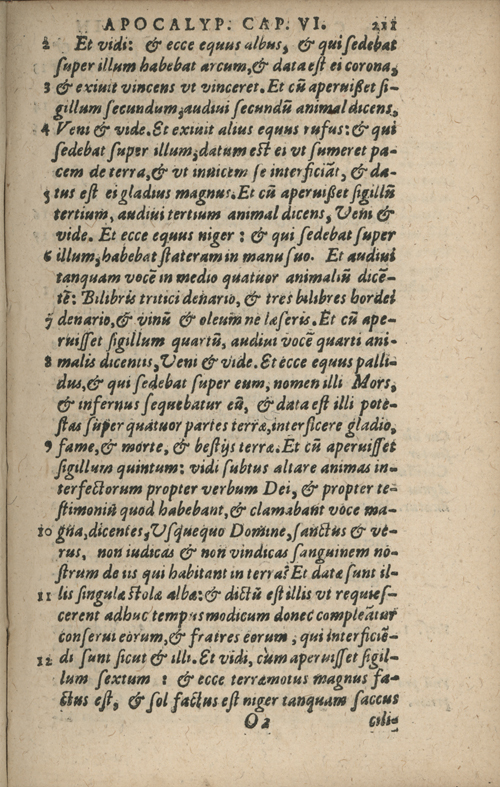 APOCALYP. CAP. VI. 211
2 Et vidi: & ecce equus albus, & qui sedebat
super illum habebat arcum, & data est ei corona,
3 & exiuit vincens vt vinceret. Et cũ aperuißet si-
gillum secundum, audiui secundũ animal dicens,
4 Veni & vide. Et exiuit alius equus rufus: & qui
sedebat super illum, datum est ei vt sumeret pa-
cem de terra, & vt inuicem se interficiãt, & da-
5 tus est ei gladius magnus. Et cũ aperuißet sigillũ
tertium, audiui tertium animal dicens, Veni &
vide. Et ecce equus niger: & qui sedebat super
6 illum, habebat stateram in manu suo. Et audiui
tanquam vocẽ in medio quatuor animaliũ dicẽ-
tẽ: Bilibris tritici denario, & tres bilibres hordei
7 denario, & vinũ & oleum ne læseris. Et cũ ape-
ruisset sigillum quartũ, audiui vocẽ quarti ani-
8 malis dicentis, Veni & vide. Et ecce equus palli-
dus, & qui sedebat super eum, nomen illi Mors,
& infernus sequebatur eũ, & data est illi pote-
stas super quatuor partes terræ, interficere gladio,
9 fame, & morte, & bestijs terræ. Et cũ aperuisset
sigillum quintum: vidi subtus altare animas in-
terfectorum propter verbum Dei, & propter te-
stimoniũ quod habebant, & clamabant voce ma-
10 gna, dicentes, Vsquequo Domine, sanctus & ve-
rus, non iudicas & non vindicas sanguinem no-
strum de iis qui habitant in terra? Et datæ sunt il-
11 lis singulæ stolæ albæ: & dictũ est illis vt requies-
cerent adhuc tempus modicum donec compleãtur
conserui eorum, & fratres eorum, qui interficiẽ-
12 di sunt sicut & illi. Et vidi, cùm aperuisset sigil-
lum sextum: & ecce terræmotus magnus fa-
ctus est, & sol factus est niger tanquam saccus
O 2 cilic